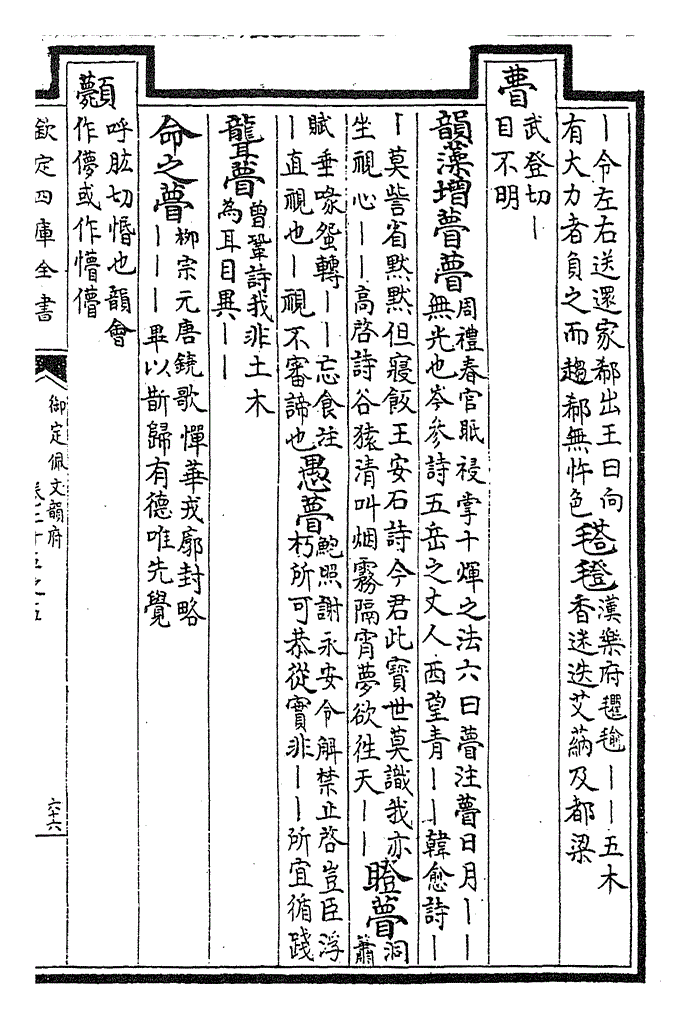 ｜令左右送還家郗出王曰向
有大力者負之而趨郗無忤色
毾㲪
漢樂府氍毹｜｜五木
香迷迭艾蒳及都梁
瞢
武登切｜
目不明
韻藻增瞢瞢
周禮春官眡祲掌十煇之法六曰瞢注瞢日月｜｜
無光也岑參詩五岳之丈人西望青｜｜韓愈詩｜
｜莫訾省黙黙但寢飯王安石詩今君此寶世莫識我亦
坐視心｜｜高啓詩谷猿清叫烟霧隔宵夢欲徃天｜｜
瞪瞢
洞
簫
賦垂喙蛩轉｜｜忘食注
｜直視也｜視不審諦也
愚瞢
鮑照謝永安令解禁止啓豈臣浮
朽所可恭從實非｜｜所宜循踐
聾瞢
曾鞏詩我非土木
為耳目異｜｜
命之瞢
柳宗元唐鐃歌憚華戎廓封略
｜｜｜畢以斮歸有德唯先覺
顭
呼肱切惛也韻會
作儚或作懵㒼
欽定四庫全書
御定佩文韻府
六十六